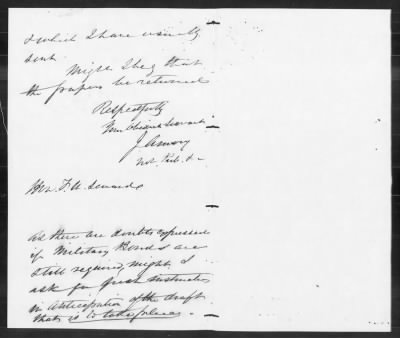 & which I have usually
sent.
Might I beg that
the papers be returned
Respectfully
Your Obedient Servant
J Amory
Not. Pub. &c
Hon. F. W. Seward
As there are doubts expressed
if Military Bonds are
still required, might I
ask for fresh instructions
in anticipation of the draft
that is to take place.